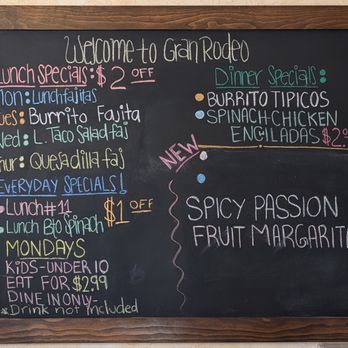 Welcome to Gran Rodeo
Lunch Specials: $2 OFF
Mon: Lunch fajitas
ues: Burrito Fajita
Wed: L. Taco Salad-faj
hur: Quesadilla-faj
EVERYDAY SPECIALS!
Lunch #11
Lunch Bto Spinach
$1 OFF
MONDAYS
KIDS-UNDER 10
EAT FOR $2.99
DINE IN ONLY-
*Drink not included
Dinner Specials:
BURRITO TIPICOS
SPINACH-CHICKEN
ENCILADAS $2
NEW
SPICY PASSION
FRUIT MARGARITA